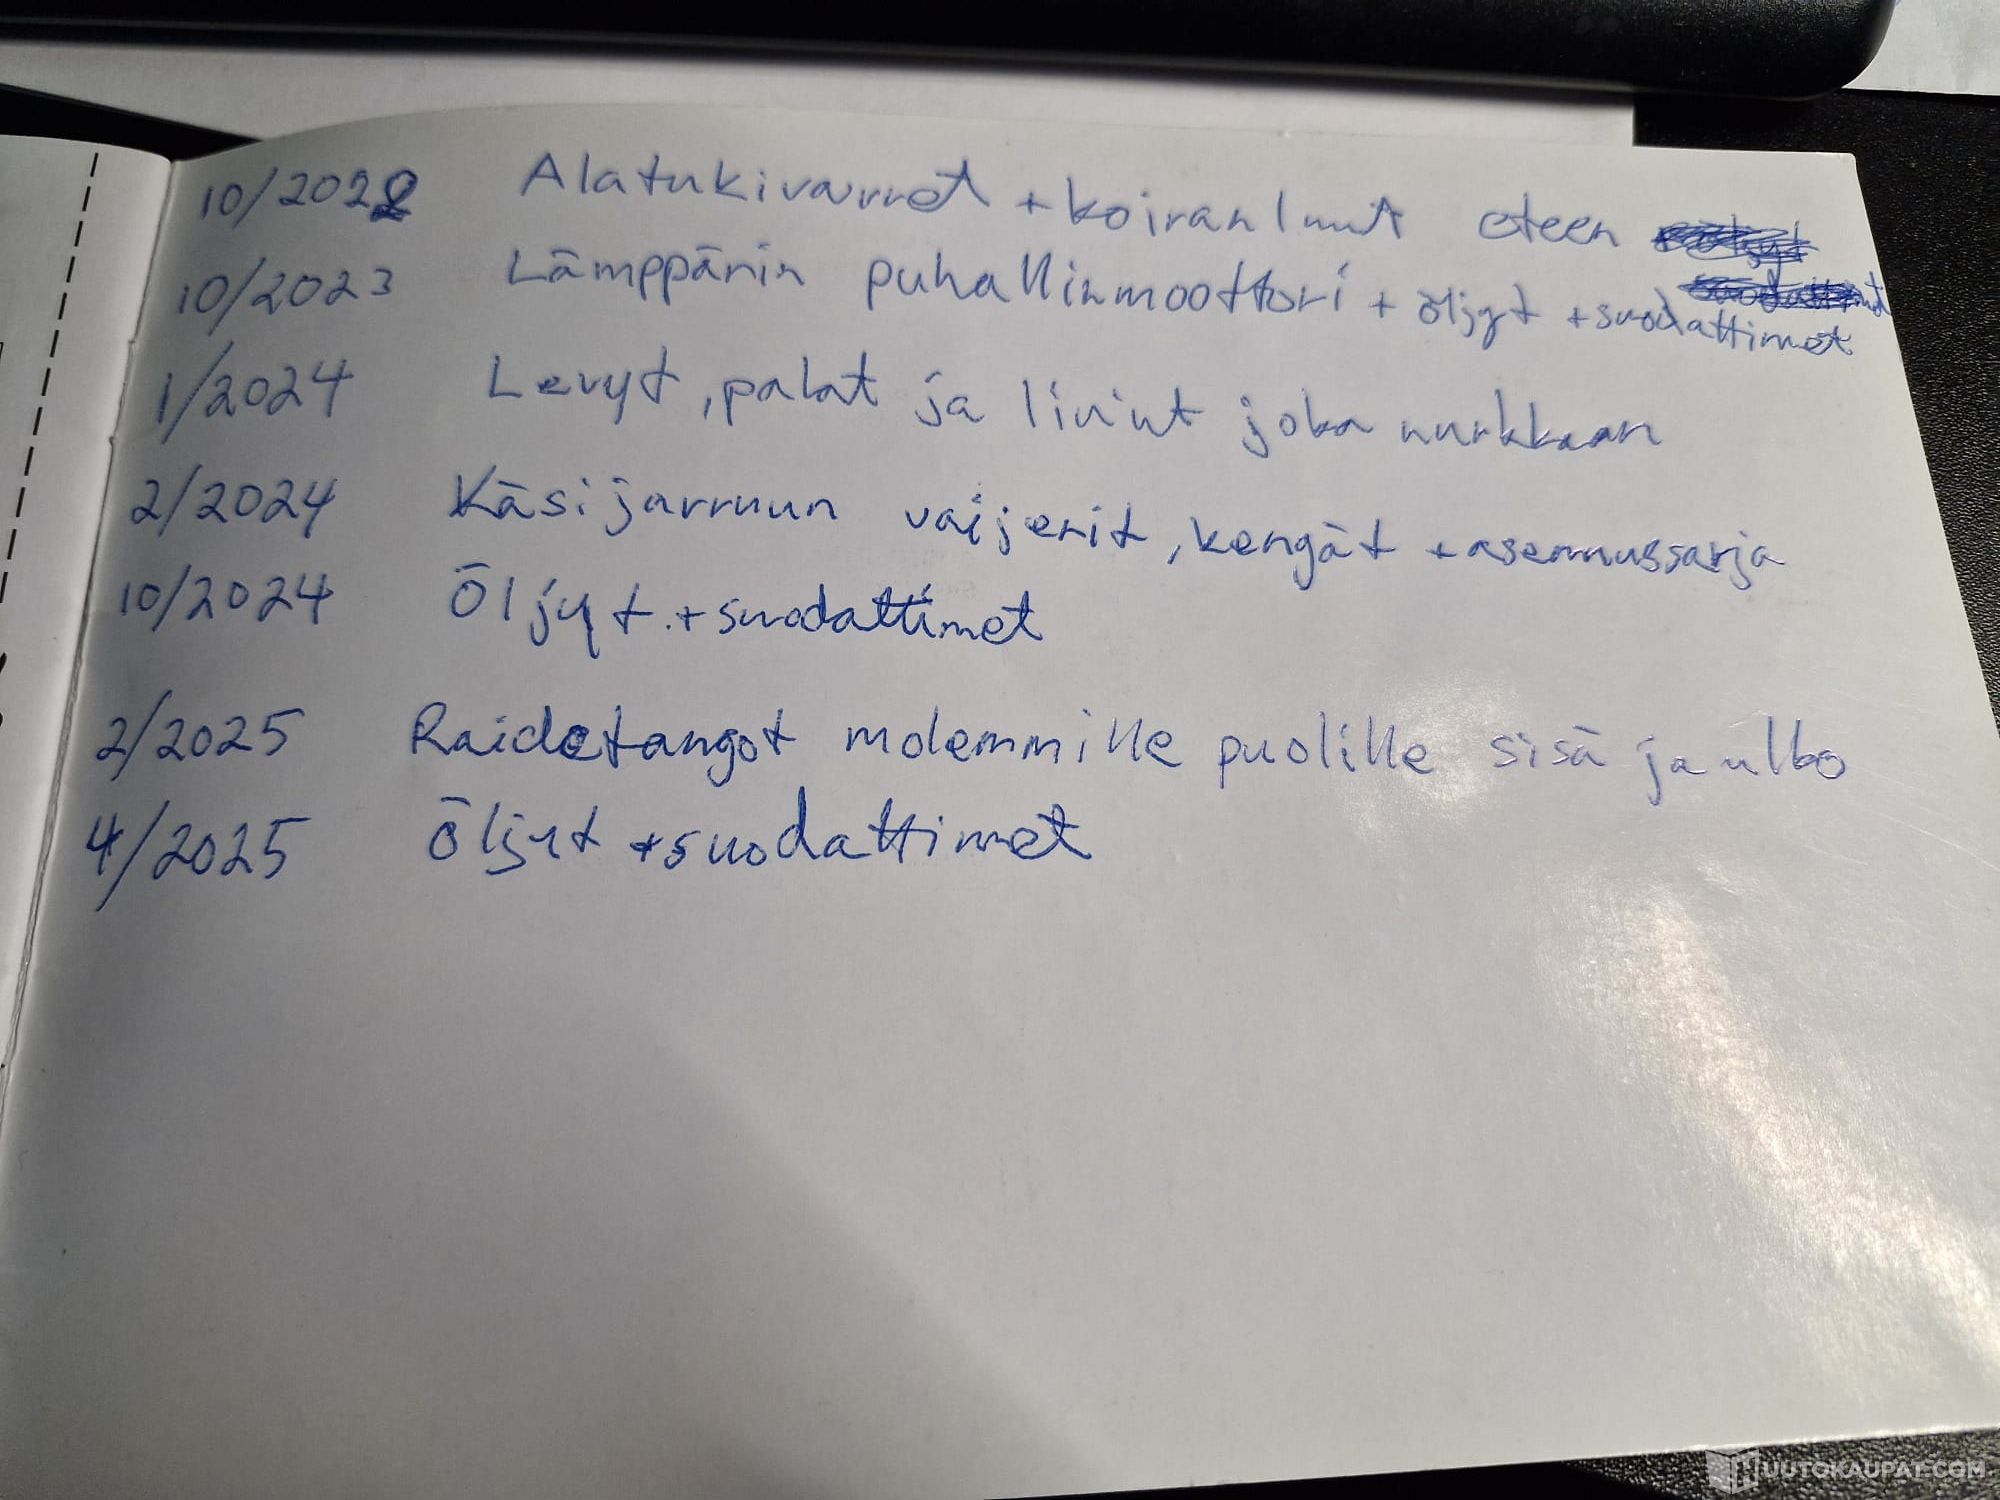 10/2022 Alatukivarret + koiranluut eteen
10/2023 Lämppärin puhallinmoottori + öljyt + suodattimet
1/2024 Levyt, palat ja liviut joka nurkkaan
2/2024 Käsijarruun vaijerit, kengät + asennussarja
10/2024 Öljyt + suodattimet
2/2025 Raidetangot molemmille puolille sisä ja ulko
4/2025 Öljyt + suodattimet
HUUTOKAUPAT.COM